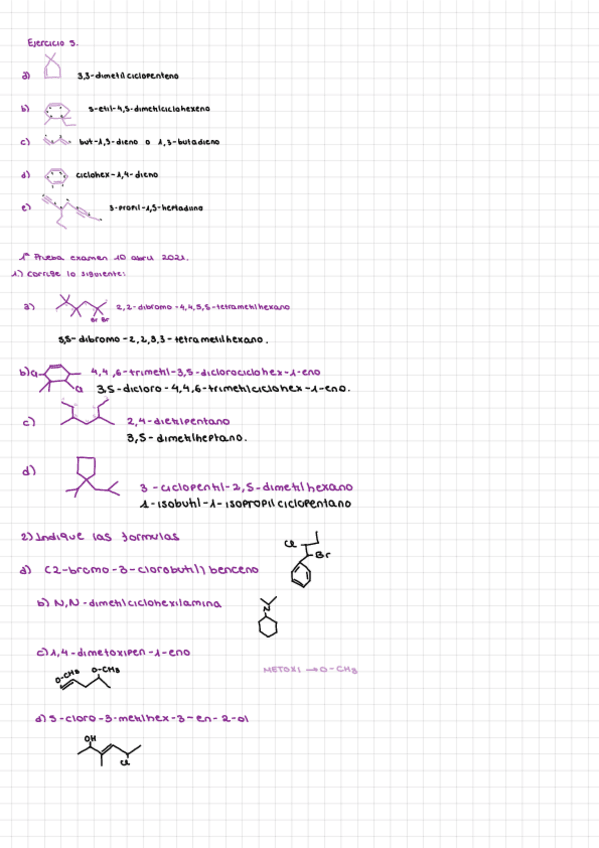 Ejercicio 5.
a) 3,3-dimetilciclopenteno
b) 5-etil-4,5-dimetilciclohexeno
c) but-1,3-dieno o 1,3-butadieno
d) ciclohex-1,4-dieno
e) 3-propil-1,5-heptadiino
1ª Prueba examen 10 abril 2021.
1.) Corrige lo siguiente:
a) 2,2-dibromo-4,4,5,5-tetrametilhexano
Br Br
5,5-dibromo-2,2,3,3-tetrametilhexano.
b) Cl 4,4,6-trimetil-3,5-diclorociclohex-1-eno
Cl 3,5-dicloro-4,4,6-trimetilciclohex-1-eno.
c) 2,4-dietilpentano
3,5-dimetilheptano.
d) 3-ciclopentil-2,5-dimetilhexano
1-isobutil-1-isopropilciclopentano
2) Indique las formulas
Cl
Br
a) (2-bromo-3-clorobutil) benceno
b) N,N-dimetilciclohexilamina
N
c) 1,4-dimetoxipen-1-eno
METOXI → O-CH3
O-CH3 O-CH3
d) 5-cloro-3-metilhex-3-en-2-ol
OH
Cl